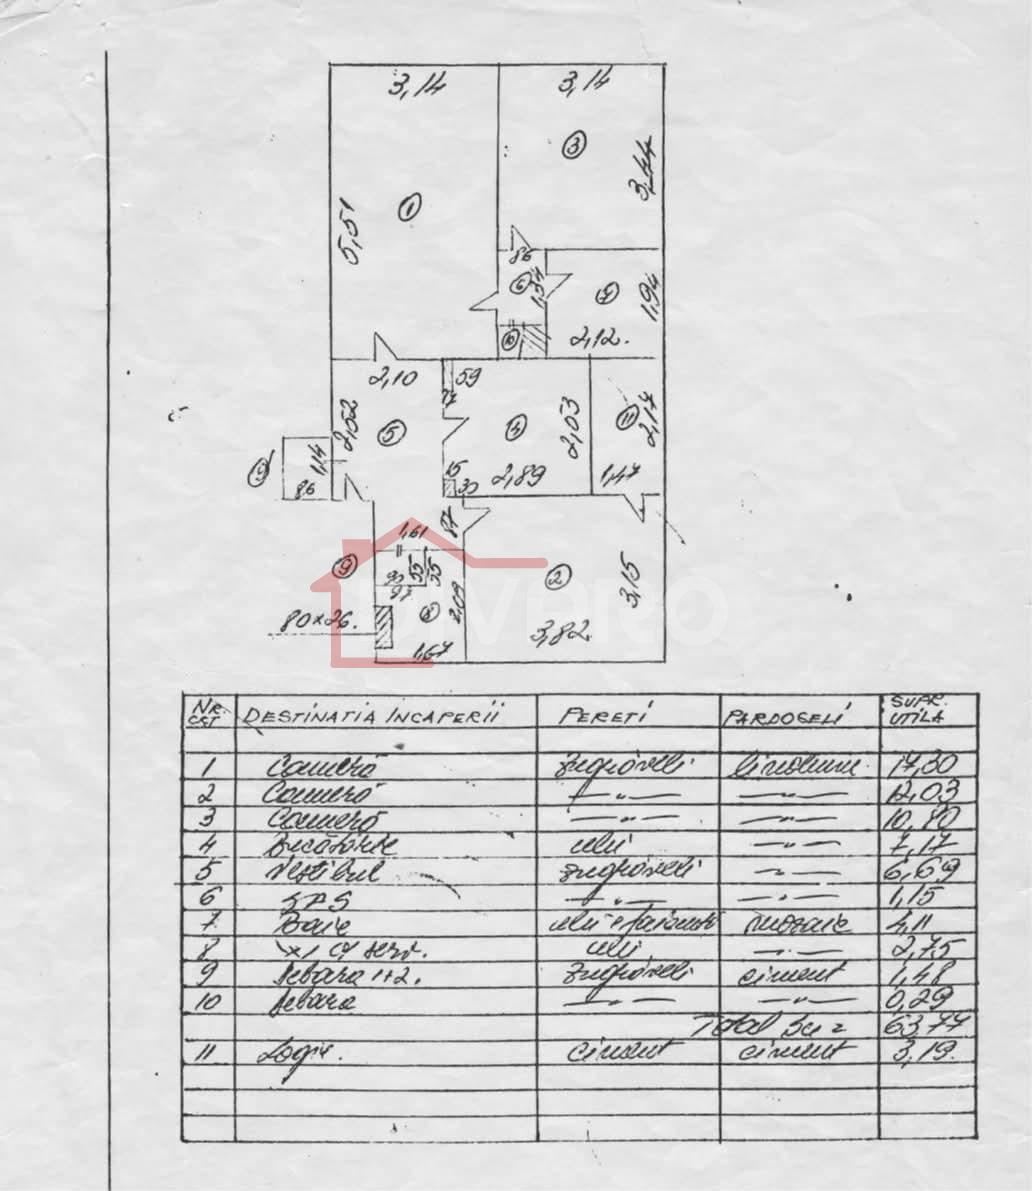 3,14
3,14
3
3,44
1
5,51
86
6
1,34
7
1,94
10
2,12.
2,10
59
2,52
5
4
2,03
11
2,17
9
1,14
86
15
30
2,89
1,47
87
1,61
9
55
55
90
97
2
3,15
8
2,09
80x26.
3,82.
1,67
NR. CST DESTINATIA INCAPERII PERETI PARDOSELI SUPR. UTILA
1 Cameră zugrăveli linoleum 17,30
2 Cameră —"— —"— 12,03
3 Cameră —"— —"— 10,80
4 Bucătărie ulei —"— 7,17
5 Vestibul zugrăveli —"— 6,69
6 —"— —"— 1,15
7 Baie ulei + faianță mozaic 4,11
8 ulei —"— 2,75
9 Debara 1+2. zugrăveli ciment 1,48
10 debara —"— —"— 0,29
Total Su = 63,77
11 Logie. ciment ciment 3,19.